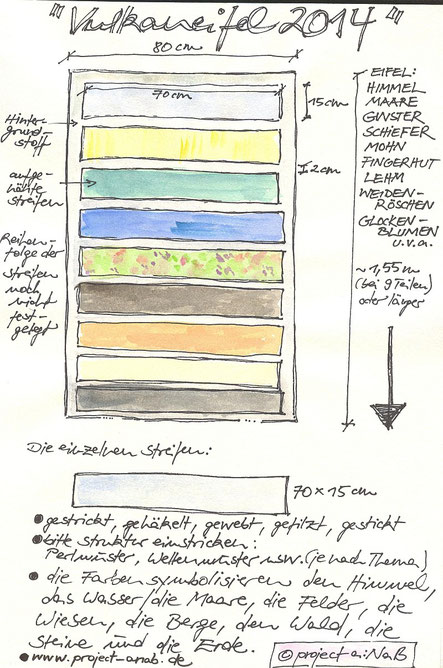 "Vulkaneifel 2014"
80 cm
70 cm
15 cm
2 cm
Hinter-
grund
stoff
aufge-
nähte
streifen
Reihen-
folge der
streifen
noch
nicht
fest-
gelegt
EIFEL:
HIMMEL
MAARE
GINSTER
SCHIEFER
MOHN
FINGERHUT
LEHM
WEIDEN-
RÖSCHEN
GLOCKEN-
BLUMEN
u.v.a.
~ 1,55 m
(bei 9 Teilen)
oder länger
Die einzelnen Streifen:
70 x 15 cm
• gestrickt, gehäkelt, gewebt, gefilzt, gestickt
• bitte Struktur einstricken:
Perlmuster, Wellenmuster usw. (je nach Thema)
• die Farben symbolisieren den Himmel,
das Wasser/die Maare, die Felder, die
Wiesen, die Berge, den Wald, die
Steine und die Erde.
• www.project-anab.de
© project a:NaB